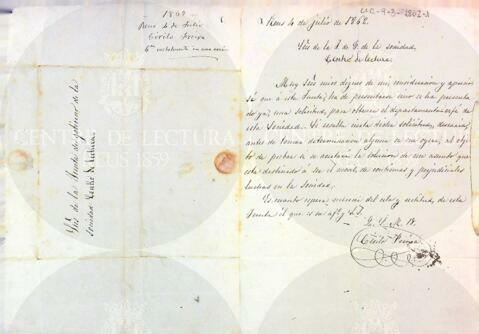 1862
Reus 4 de Julio
Cirilo Freixa
Sres de la Junta de gobierno de la
sociedad Centro de Lectura
CENTRE DE LECTURA
REUS 1859
Reus 4 de julio de 1862.
Sres de la J. de G. de la sociedad
Centro de lectura.
Muy Sres mios dignos de mi consideracion y aprecio:
Sé que á esta Junta, ha de presentarse sino se ha presenta
do ya, una solicitud, para obtener el departamento café de
esta Sociedad. Si resulta cierta dicha solicitud, desearia,
antes de tomar determinacion alguna se me oyese, al obje
to de probar si se acertara la solucion de un asunto que
esta destinado á ser el movil de continuas y perjudiciales
luchas en la Sociedad.
Es cuanto espera merecer del celo y rectitud, de esta
Junta el que es su af. y S. S.
Cirilo Freixa